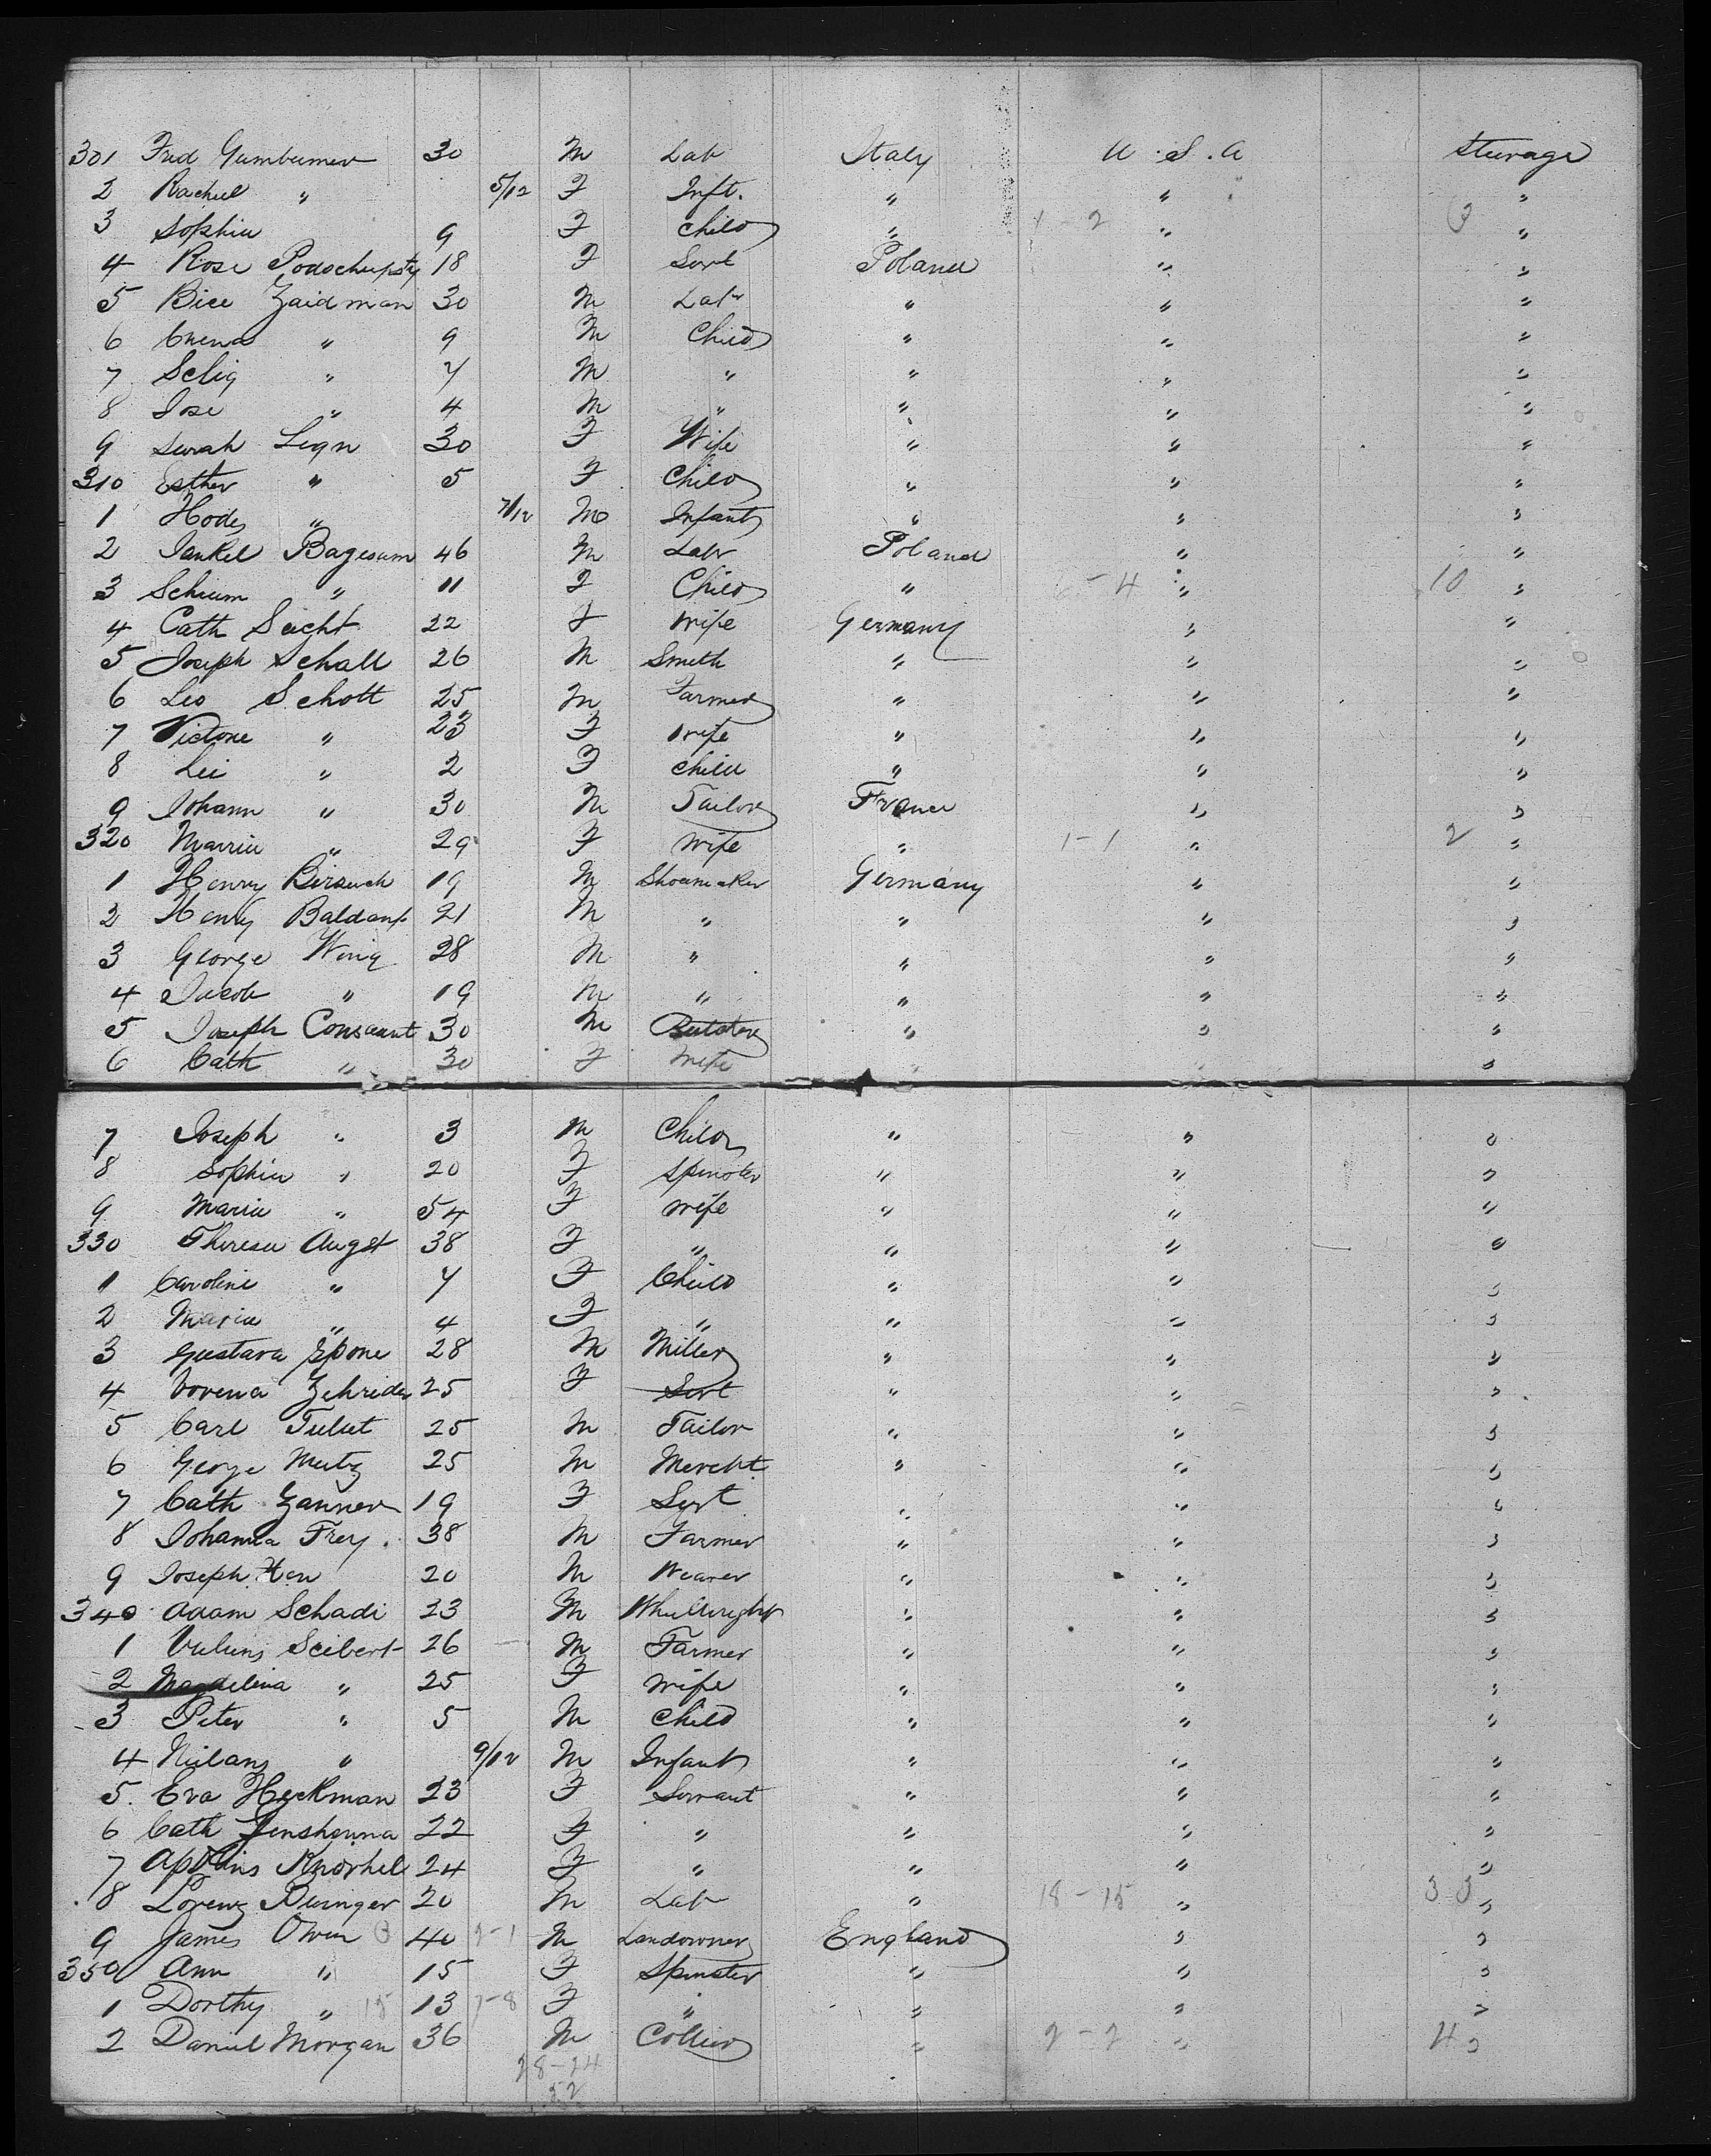 301 Fred Gumbumer 30 M Lab Italy U.S.A Steerage
2 Rachel " 5/12 F Inft. " " "
3 Sophia 9 F Child " 1-2 " 3 "
4 Rose 18 F Servt Poland " "
5 Bice Zaidman 30 M Labr " " "
6 " 9 M Child " " "
7 Selig " 7 M " " " "
8 Jose " 4 M " " " "
9 Sarah Lign 30 F Wife " " "
310 Esther " 5 F Child " " "
1 Hody " 7/12 M Infant " " "
2 Jankel Bagesum 46 M Labr Poland " "
3 Schium " 11 F Child " 6-4 " 10 "
4 Cath Seicht 22 F Wife Germany " "
5 Joseph Schall 26 M Smith " " "
6 Leo Schott 25 M Farmer " " "
7 Victore " 23 F Wife " " "
8 Lei " 2 F Child " " "
9 Johann " 30 M Tailor France " "
320 Marria " 29 F Wife " 1-1 " 2 "
1 Henry 19 M Shoemaker Germany " "
2 Henry Baldanf 21 M " " " "
3 George Wing 28 M " " " "
4 Jacob " 19 M " " " "
5 Joseph Consaant 30 M Butcher " " "
6 Cath " 30 F Wife " " "
7 Joseph " 3 M Child " " "
8 Sophia " 20 F Spinster " " "
9 Maria " 54 F Wife " " "
330 Theresa Augst 38 F " " " "
1 Caroline " 7 F Child " " "
2 Maria " 4 F " " " "
3 Gustava Epone 28 M Miller " " "
4 Vorena Zehrider 25 F Servt " " "
5 Carl Tulut 25 M Tailor " " "
6 George Mutz 25 M Mercht " " "
7 Cath Zanner 19 F Servt " " "
8 Johanna Frey. 38 M Farmer " " "
9 Joseph Hen 20 M Weaver " " "
340 Adam Schadi 23 M Whellwright " " "
1 Seibert 26 M Farmer " " "
2 Magdelina " 25 F Wife " " "
3 Peter " 5 M Child " " "
4 Nielans " 9/12 M Infant " " "
5. Eva Heckman 23 F Servant " " "
6 Cath 22 F " " " "
7 Knorhel 24 F " " " "
8 Lorenz Deringer 20 M Lab " 18-15 " 33 "
9 James Owen 3 40 2-1 M Landowner England " "
350 Ann " 15 F Spinster " " "
1 Dorthy " 15 13 7-8 F " " " "
2 Daniel Morgan 36 M Collier " 2-2 " 4 "
28-24
52